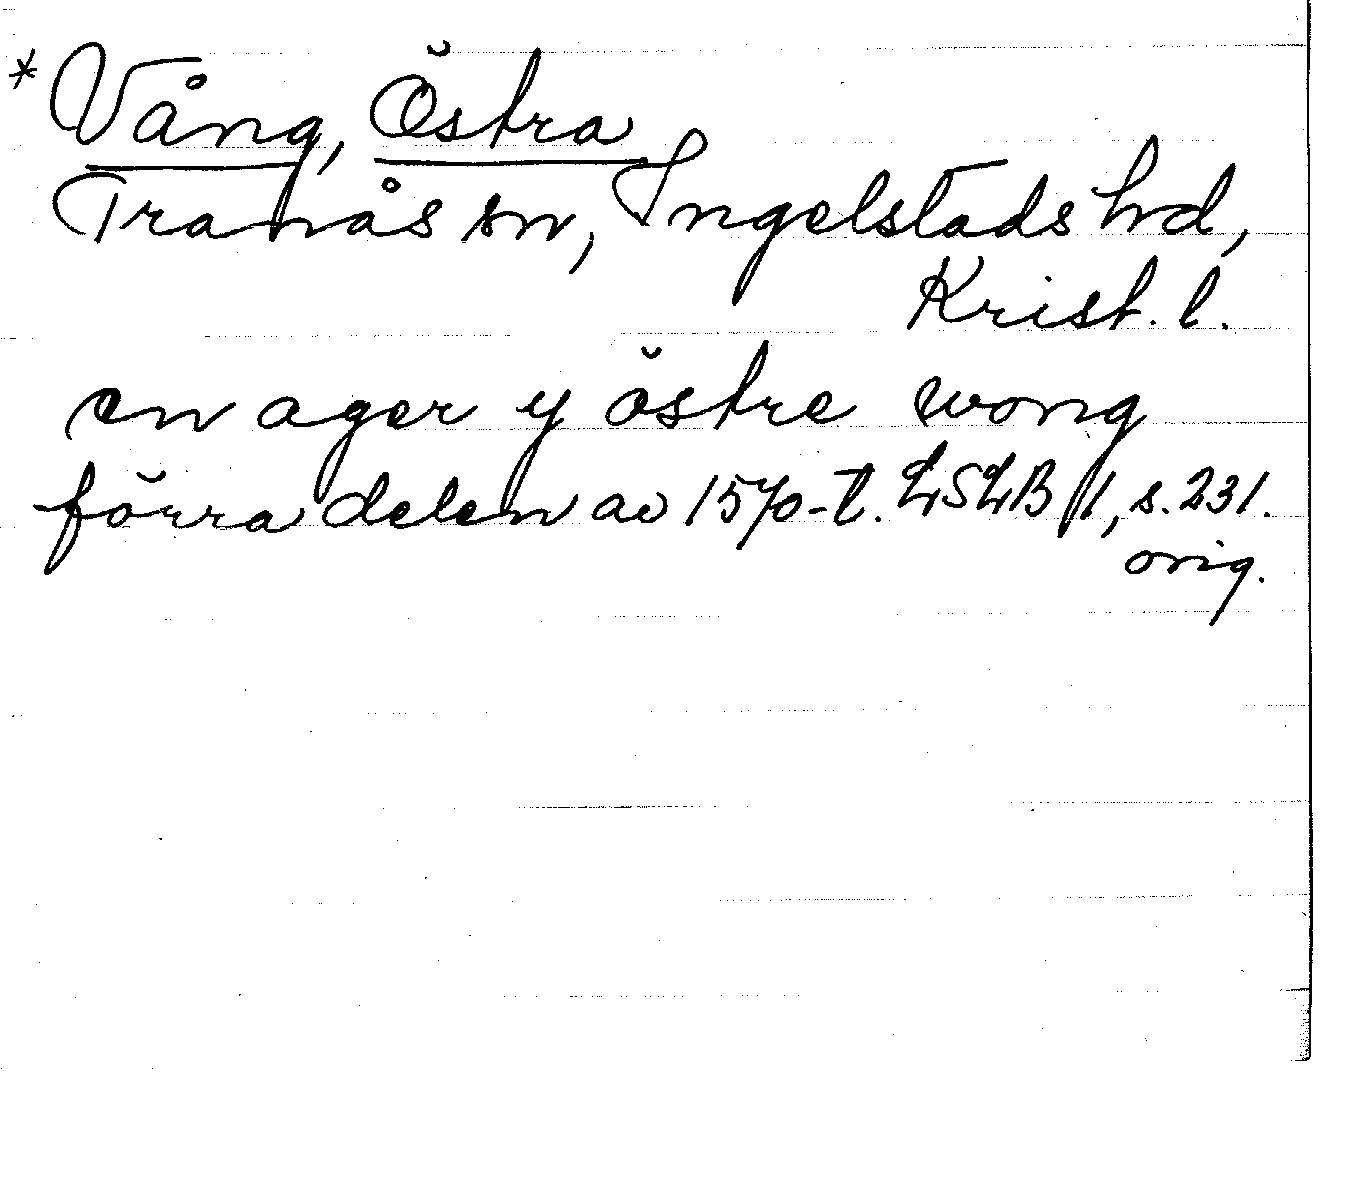 * Vång, Östra
Tranås sn, Ingelstads hd,
Krist. l.
en ager y östre wong
förra delen av 1570-t. LSLB 1, s. 231.
orig.